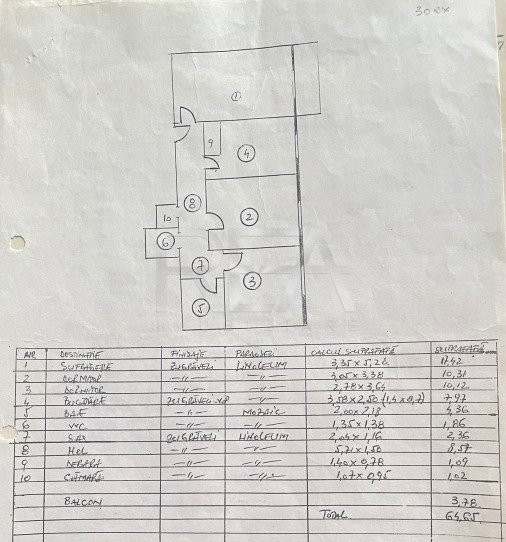 1
9
4
8
10
2
6
7
3
5
NR. DESTINATIE FINISAJE PARDOSELI CALCUL SUPRAFATĂ SUPRAFATĂ
1 SUFRAGERIE ZUGRĂVELI LINOLEUM 3,35 x 5,2 17,42
2 DORMITOR -"- -"- 3,05 x 3,38 10,31
3 DORMITOR -"- -"- 2,78 x 3,64 10,12
4 BUCĂTĂRIE ZUGRĂVELI -"- 3,58 x 2,50 (1,4 x 0,7) 7,97
5 BAE -"- MOZAIC 2,00 x 2,18 4,36
6 WC -"- -"- 1,35 x 1,38 1,86
7 SAS ZUGRĂVELI LINOLEUM 2,04 x 1,16 2,36
8 HOL -"- -"- 5,71 x 1,50 8,57
9 DEBARA -"- -"- 1,40 x 0,78 1,09
10 CĂMARĂ -"- -"- 1,07 x 0,95 1,02
BALCON 3,78
TOTAL 64,65